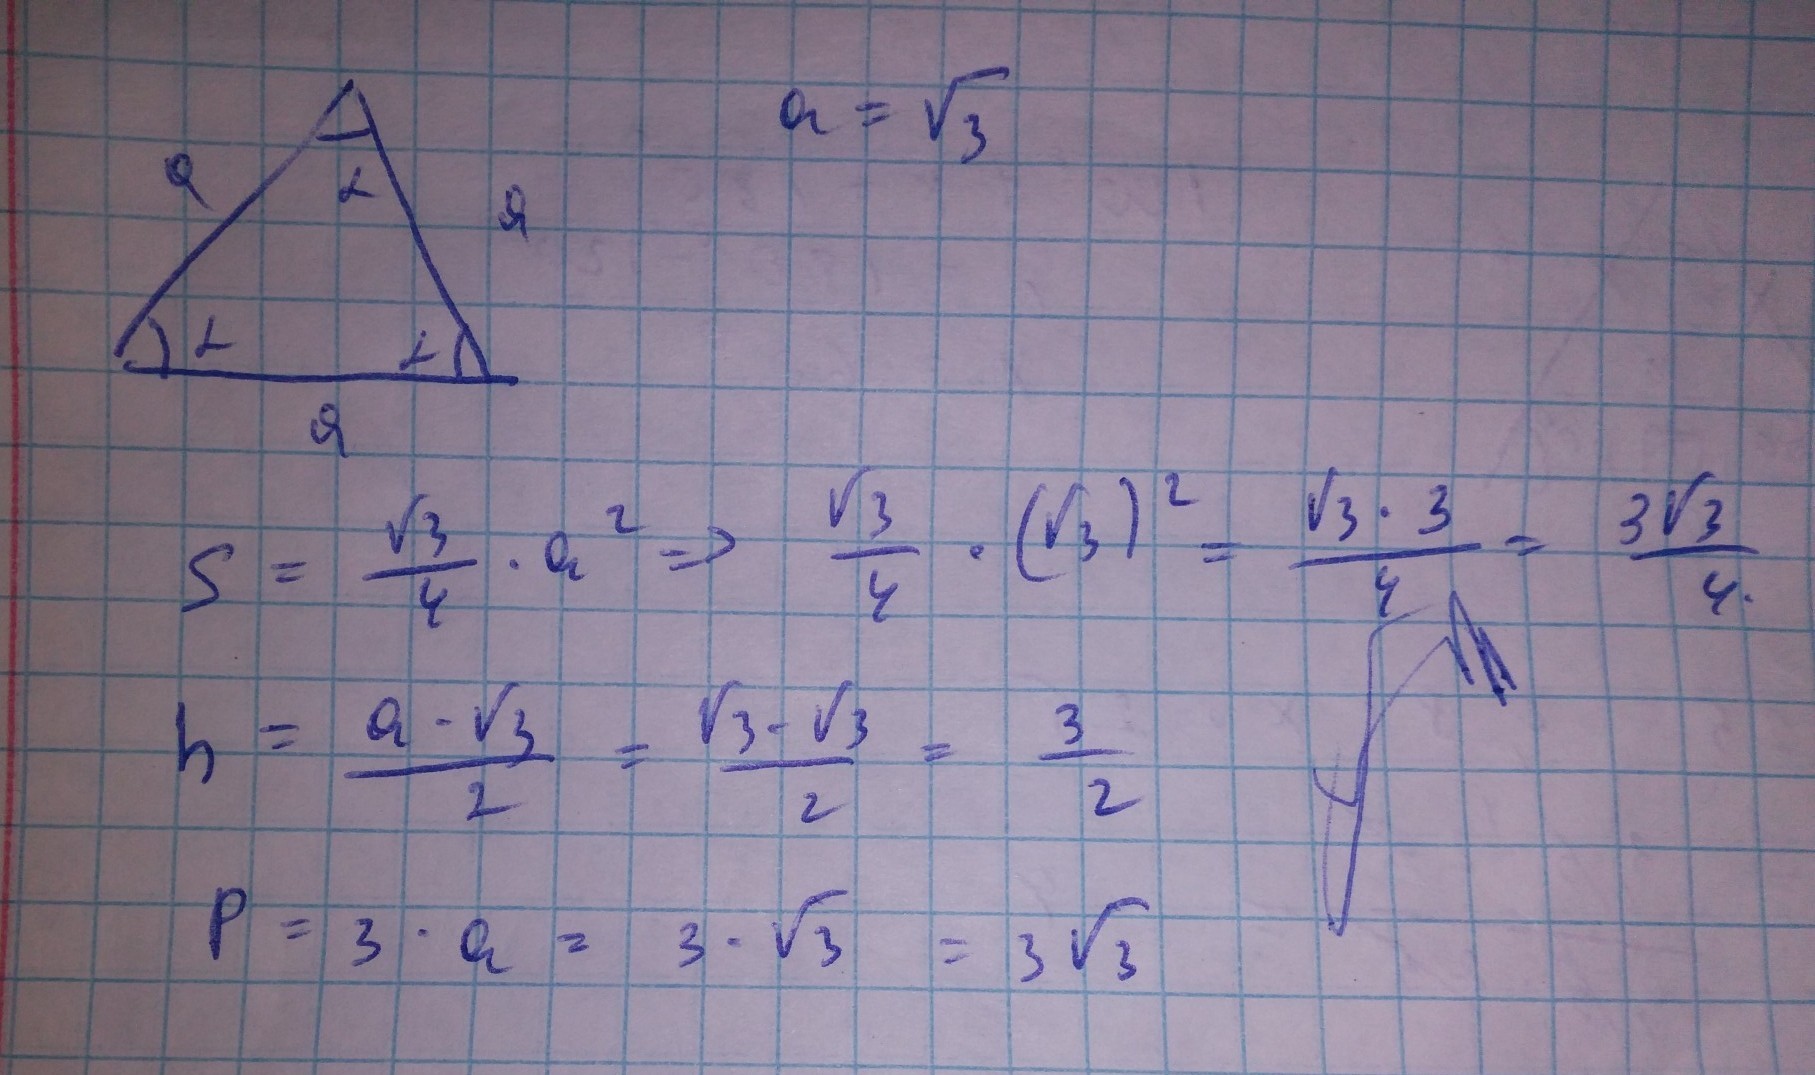 a = √3
a
α
a
α α
a
S = √3/4 · a² => √3/4 · (√3)² = √3 · 3/4 = 3√3/4.
h = a - √3/2 = √3 - √3/2 = 3/2
P = 3 · a = 3 · √3 = 3√3